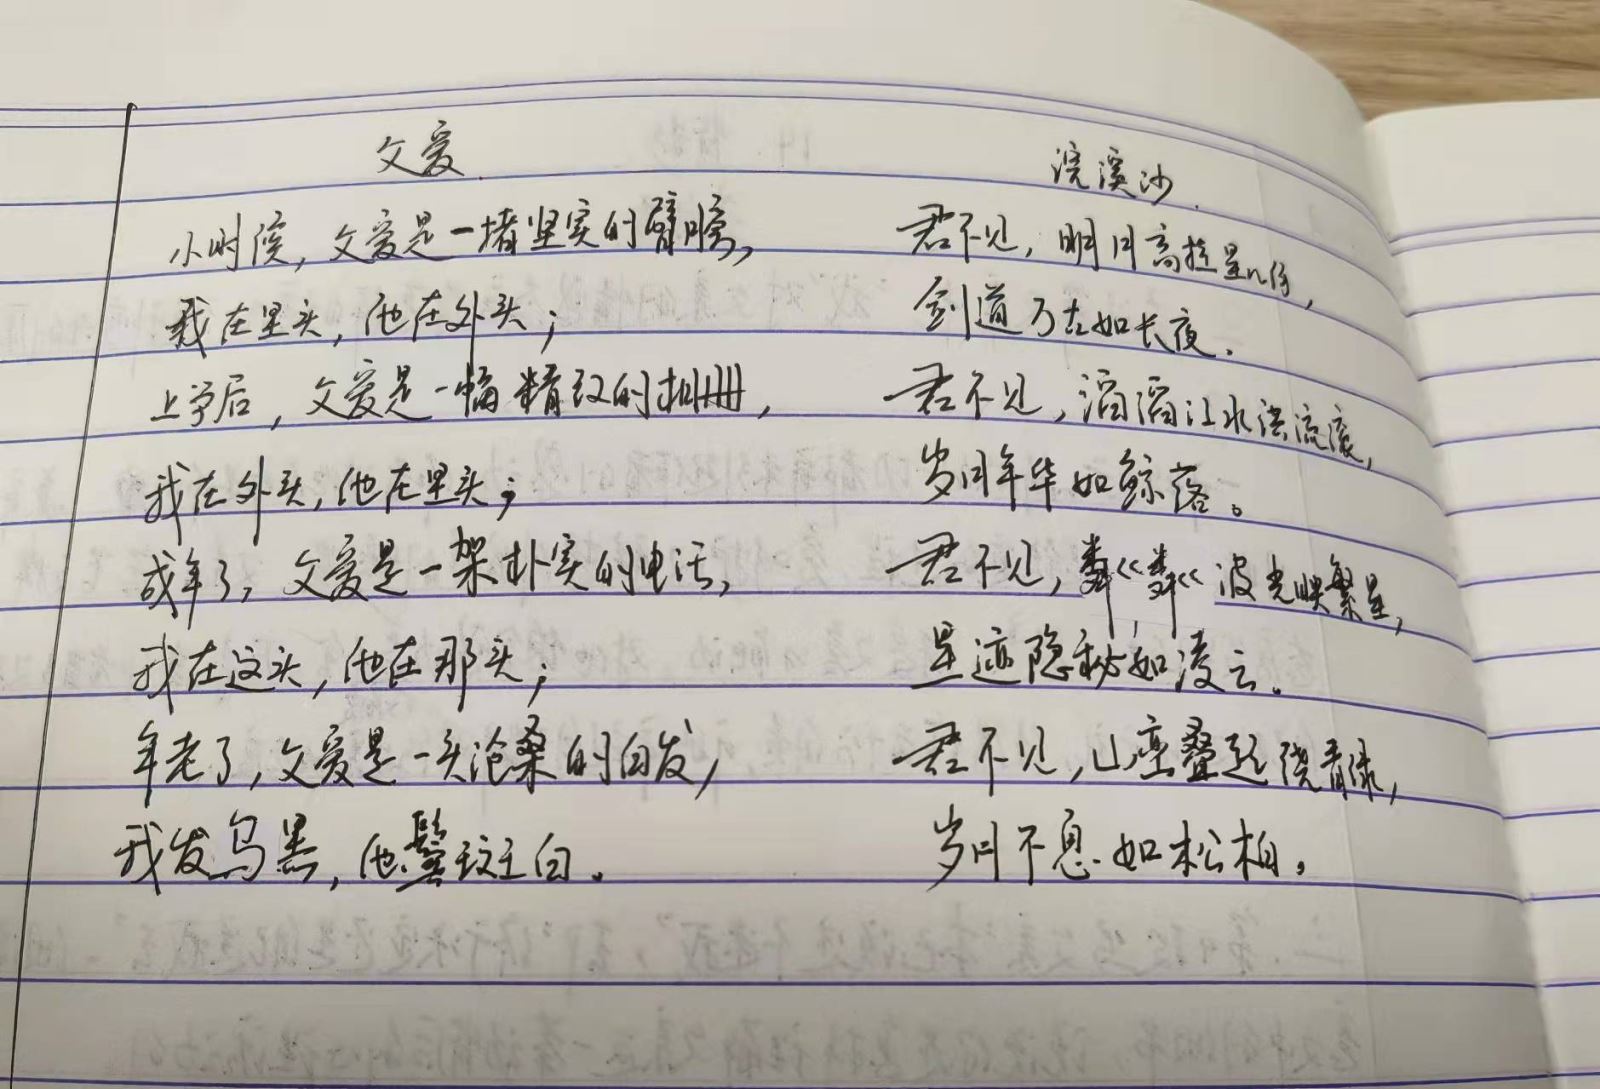 父爱
小时候，父爱是一堵坚实的臂膀，
我在里头，他在外头；
上学后，父爱是一幅精致的相册，
我在外头，他在里头；
成年了，父爱是一架朴实的电话，
我在这头，他在那头；
年老了，父爱是一头沧桑的白发，
我发乌黑，他鬓斑白。
浣溪沙
君不见，明月高挂星几何，
剑道万古如长夜．
君不见，滔滔江水洪流滚，
岁月年华如鲸落。
君不见，粼粼波光映繁星，
星迹隐秘如凌云。
君不见，山峦叠起绕青绿，
岁月不息如松柏。